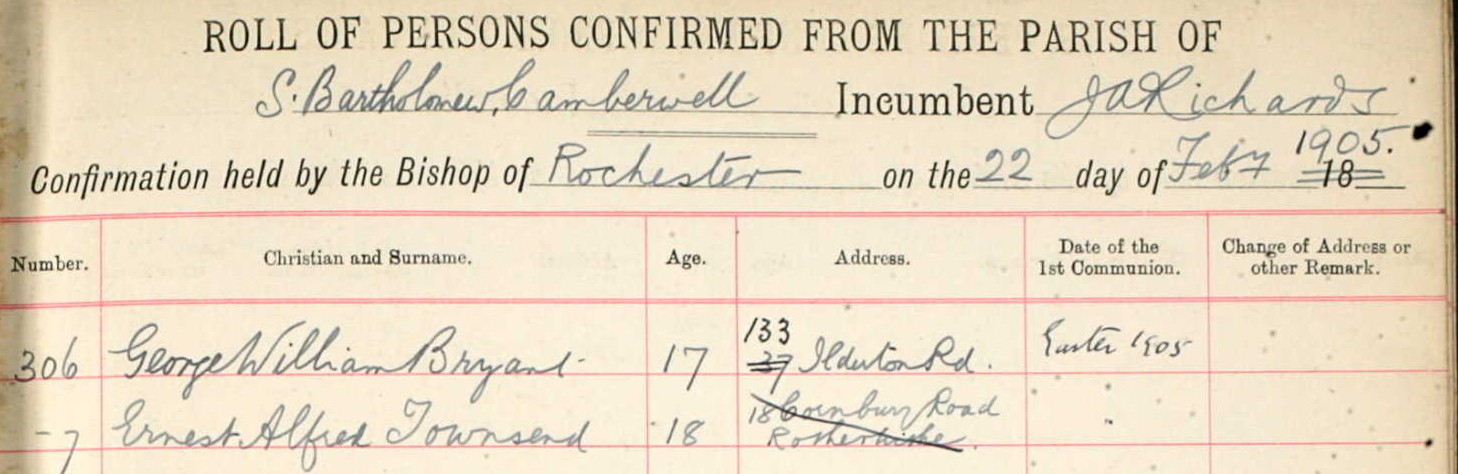 ROLL OF PERSONS CONFIRMED FROM THE PARISH OF
S. Bartholomew, Camberwell Incumbent J A Richards
Confirmation held by the Bishop of Rochester on the 22 day of Feby 18 1905.
Number. Christian and Surname. Age. Address. Date of the 1st Communion. Change of Address or other Remark.
133
306 George William Bryant 17 37 Ilderton Rd. Easter 1905
18 Road
-7 Ernest Alfred Townsend 18 Rotherhithe "